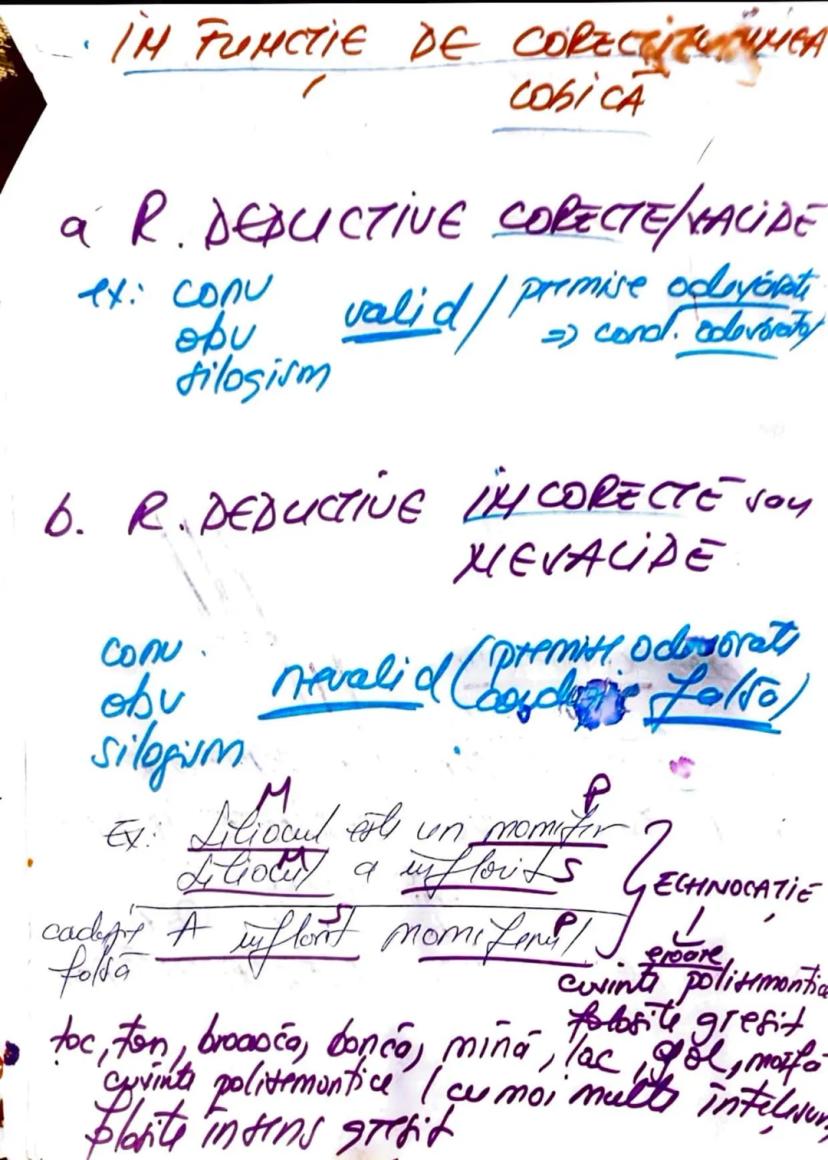 IN FUNCȚIE DE CORECTITUDINEA
LOGICĂ
a R. DEDUCTIVE CORECTE/VALIDE
ex: conv
obv valid / premise adevărate
silogism => concl. adevărată
b. R. DEDUCTIVE INCORECTE sau
NEVALIDE
conv.
obv nevalid (premise adevărate
silogism concluzie falsă)
M P
Ex: Liliacul este un mamifer
Liliacul M a înflorit S
concluzie A înflorit S mamiferul P
falsă
ECHIVOCAȚIE
eroare
cuvinte polisemantice
folosite greșit
toc, ton, broască, bancă, mină, lac, gol, masă
cuvinte polisemantice / cu mai multe înțelesuri
folosite în sens greșit